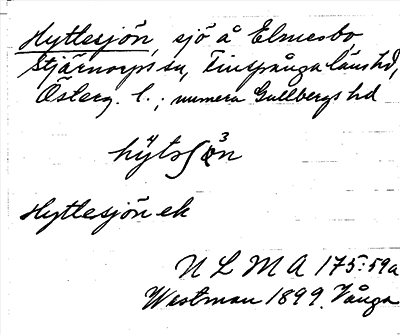 Hyttesjön, sjö å Elmesbo,
Stjärnorps sn, Finspånga läns hd,
Österg. l.; numera Gullbergs hd
Hyttesjön ek
N L M A 175:59a
Westman 1899. Vånga